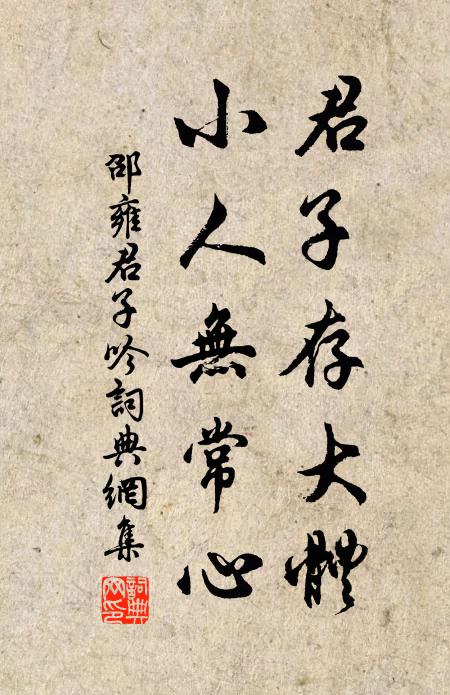 君子存大體
小人無常心
邵雍君子吟詞典網集
詞典
网印